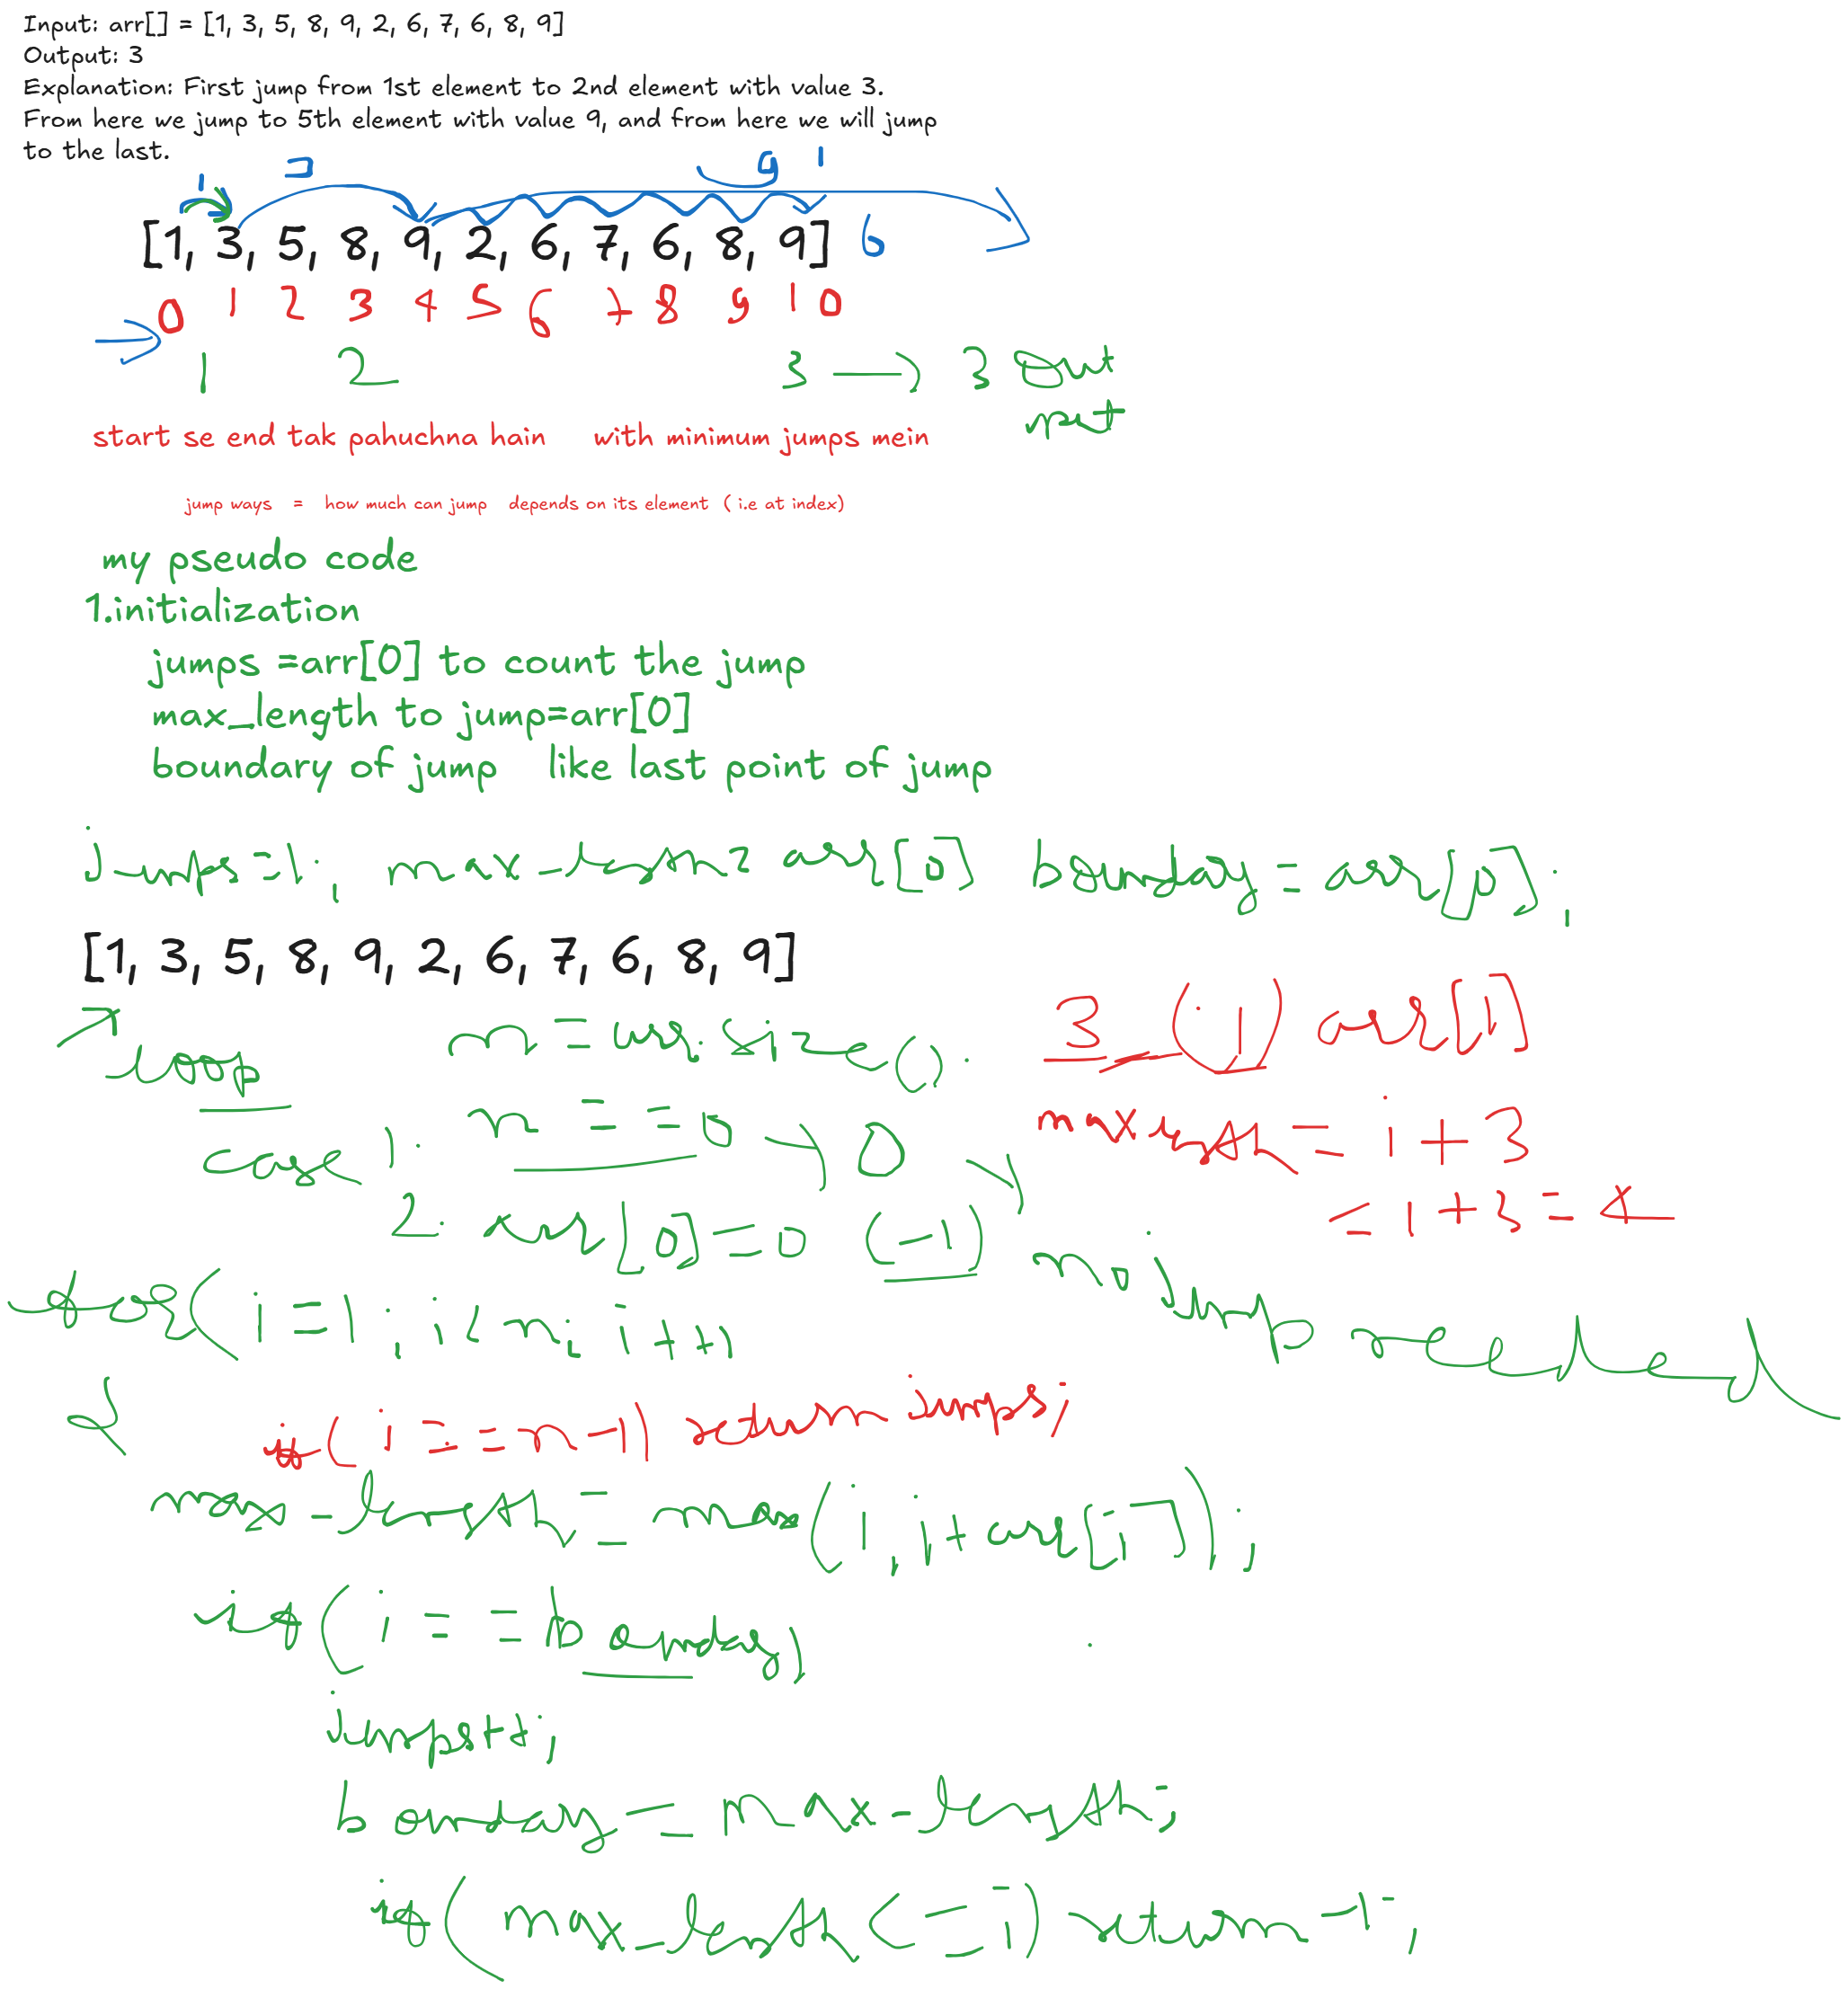 Input: arr[] = [1, 3, 5, 8, 9, 2, 6, 7, 6, 8, 9]
Output: 3
Explanation: First jump from 1st element to 2nd element with value 3.
From here we jump to 5th element with value 9, and from here we will jump
to the last.
1 3 9 1
[1, 3, 5, 8, 9, 2, 6, 7, 6, 8, 9]
0 1 2 3 4 5 6 7 8 9 10
1 2 3 → 3 Out
start se end tak pahuchna hain with minimum jumps mein
jump ways = how much can jump depends on its element ( i.e at index)
my pseudo code
1.initialization
jumps =arr[0] to count the jump
max_length to jump=arr[0]
boundary of jump like last point of jump
jumps=1; max-length = arr[0] boundary = arr[0];
[1, 3, 5, 8, 9, 2, 6, 7, 6, 8, 9]
loop n = arr.size(). 3 (i) arr[1]
case 1. n == 0 → 0 max length = i + 3
= 1 + 3 = 4
2. arr[0] = 0 (-1) no jump needed
for( i = 1; i < n; i++
{
if( i == n-1) return jumps;
max-length = max(i, i+arr[i]);
if( i == boundary)
jumps++;
boundary = max-length;
if(max-length <= i) return -1;